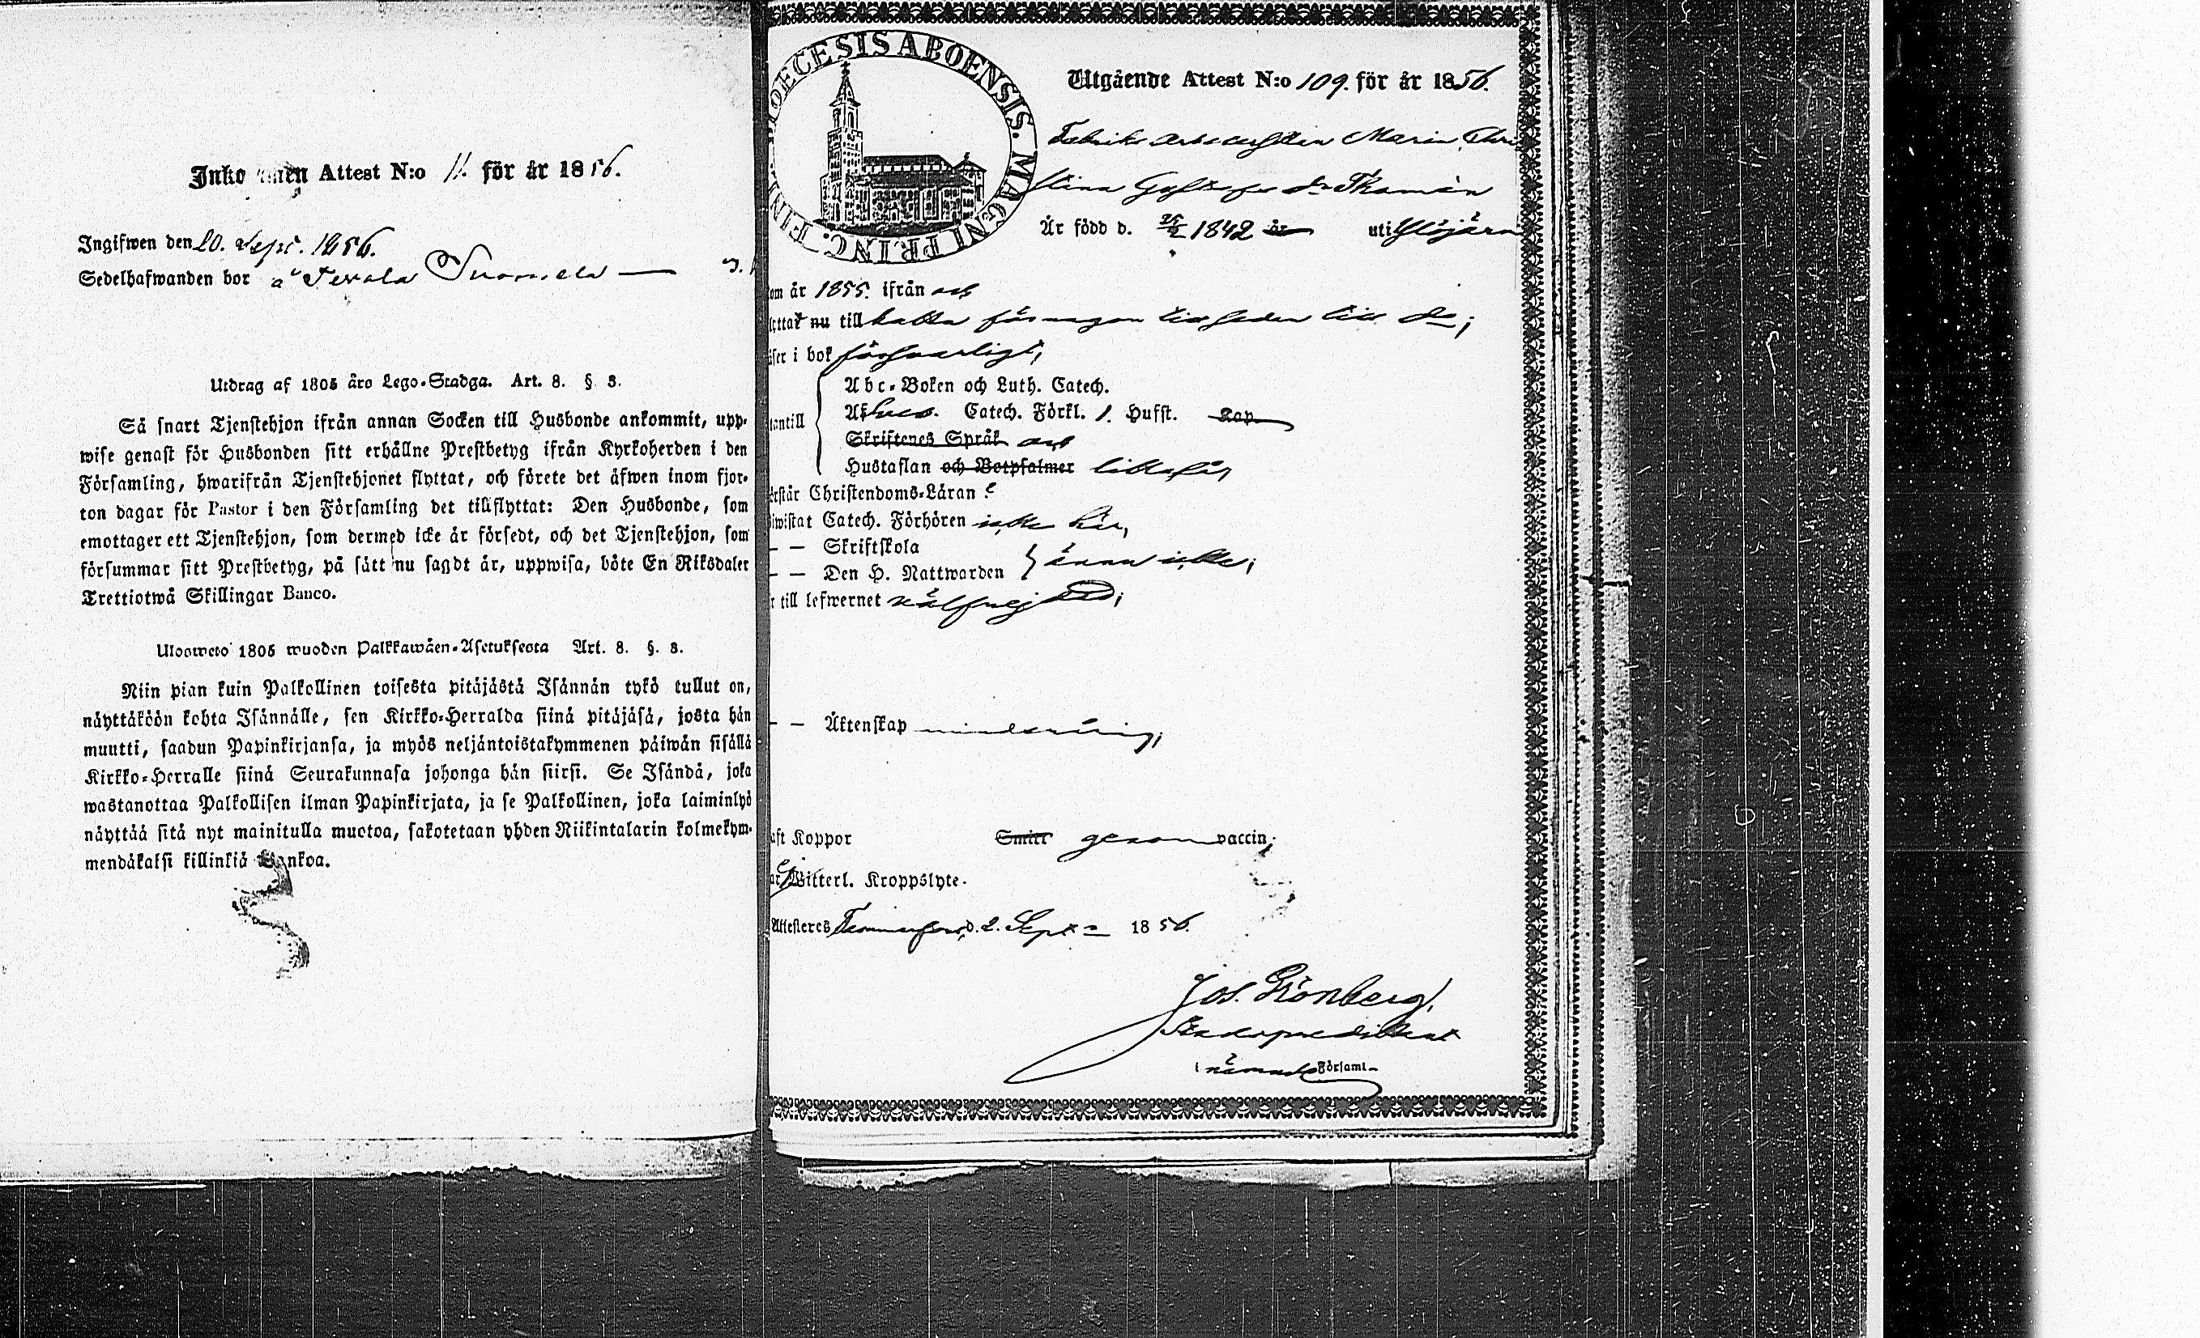 Inko mmen Attest N:o 11. för år 1856.
Ingifwen den 20. Sept. 1856.
Sedelhafwanden bor å
Utdrag af 1805 års Lego-Stadga. Art. 8. § 3.
Så snart Tjenstehjon ifrån annan Socken till Husbonde ankommit, upp-
wise genast för Husbonden sitt erhållne Prestbetyg ifrån Kyrkoherden i den
Församling, hwarifrån Tjenstehjonet flyttat, och förete det äfwen inom fjor-
ton dagar för Pastor i den Församling det tillflyttat: Den Husbonde, som
emottager ett Tjenstehjon, som dermed icke är försedt, och det Tjenstehjon, som
försummar sitt Prestbetyg, på sätt nu sagdt är, uppwisa, böte En Riksdaler
Trettiotwå Skillingar Banco.
Ulosweto 1805 wuoden Palkkawäen-Asetuksesta Art. 8. §. 3.
Niin pian kuin Palkollinen toisesta pitäjästä Isännän tykö tullut on,
näyttäköön kohta Isännälle, sen Kirkko-Herralda siinä pitäjäsä, josta hän
muutti, saadun Papinkirjansa, ja myös neljäntoistakymmenen päiwän sisällä
Kirkko-Herralle siinä Seurakunnasa johonga hän siirsi. Se Isändä, joka
wastanottaa Palkollisen ilman Papinkirjata, ja se Palkollinen, joka laiminlyö
näyttää sitä nyt mainitulla muotoa, sakotetaan yhden Riikintalarin kolmekym-
mendäkaksi killinkiä Bankoa.
DIOECESIS ABOENSIS. MAGNI PRINC. FIN
Utgående Attest N:o 109. för år 1856.
Fabriks arbeterskan Maria Chri
stina Gustafs dr Thamén
Är född d. 1842 år uti Ylöjärvi
om år 1855. ifrån och
lyttar nu till för någon tid sedan till
äser i bok försvarligt,
Abc-Boken och Luth. Catech.
utantill Af Catech. Förkl. 1. Hufst. Kap
Skriftenes Språk och
Hustaflan och Botpsalmer
örstår Christendoms-Läran
iwistat Catech. Förhören icke här,
– – Skriftskola
– – Den H. Nattwarden ännu icke;
r till lefwernet välfrejdad;
– – Äktenskap minderårig,
aft Koppor Smitt genom vaccin.
ar ej Witterl. Kroppslyte.
Attesteres Tammerfors, d. 2. Sept. 1856.
Jos. Grönberg,
Stadspredikant
i nämnde Församl.